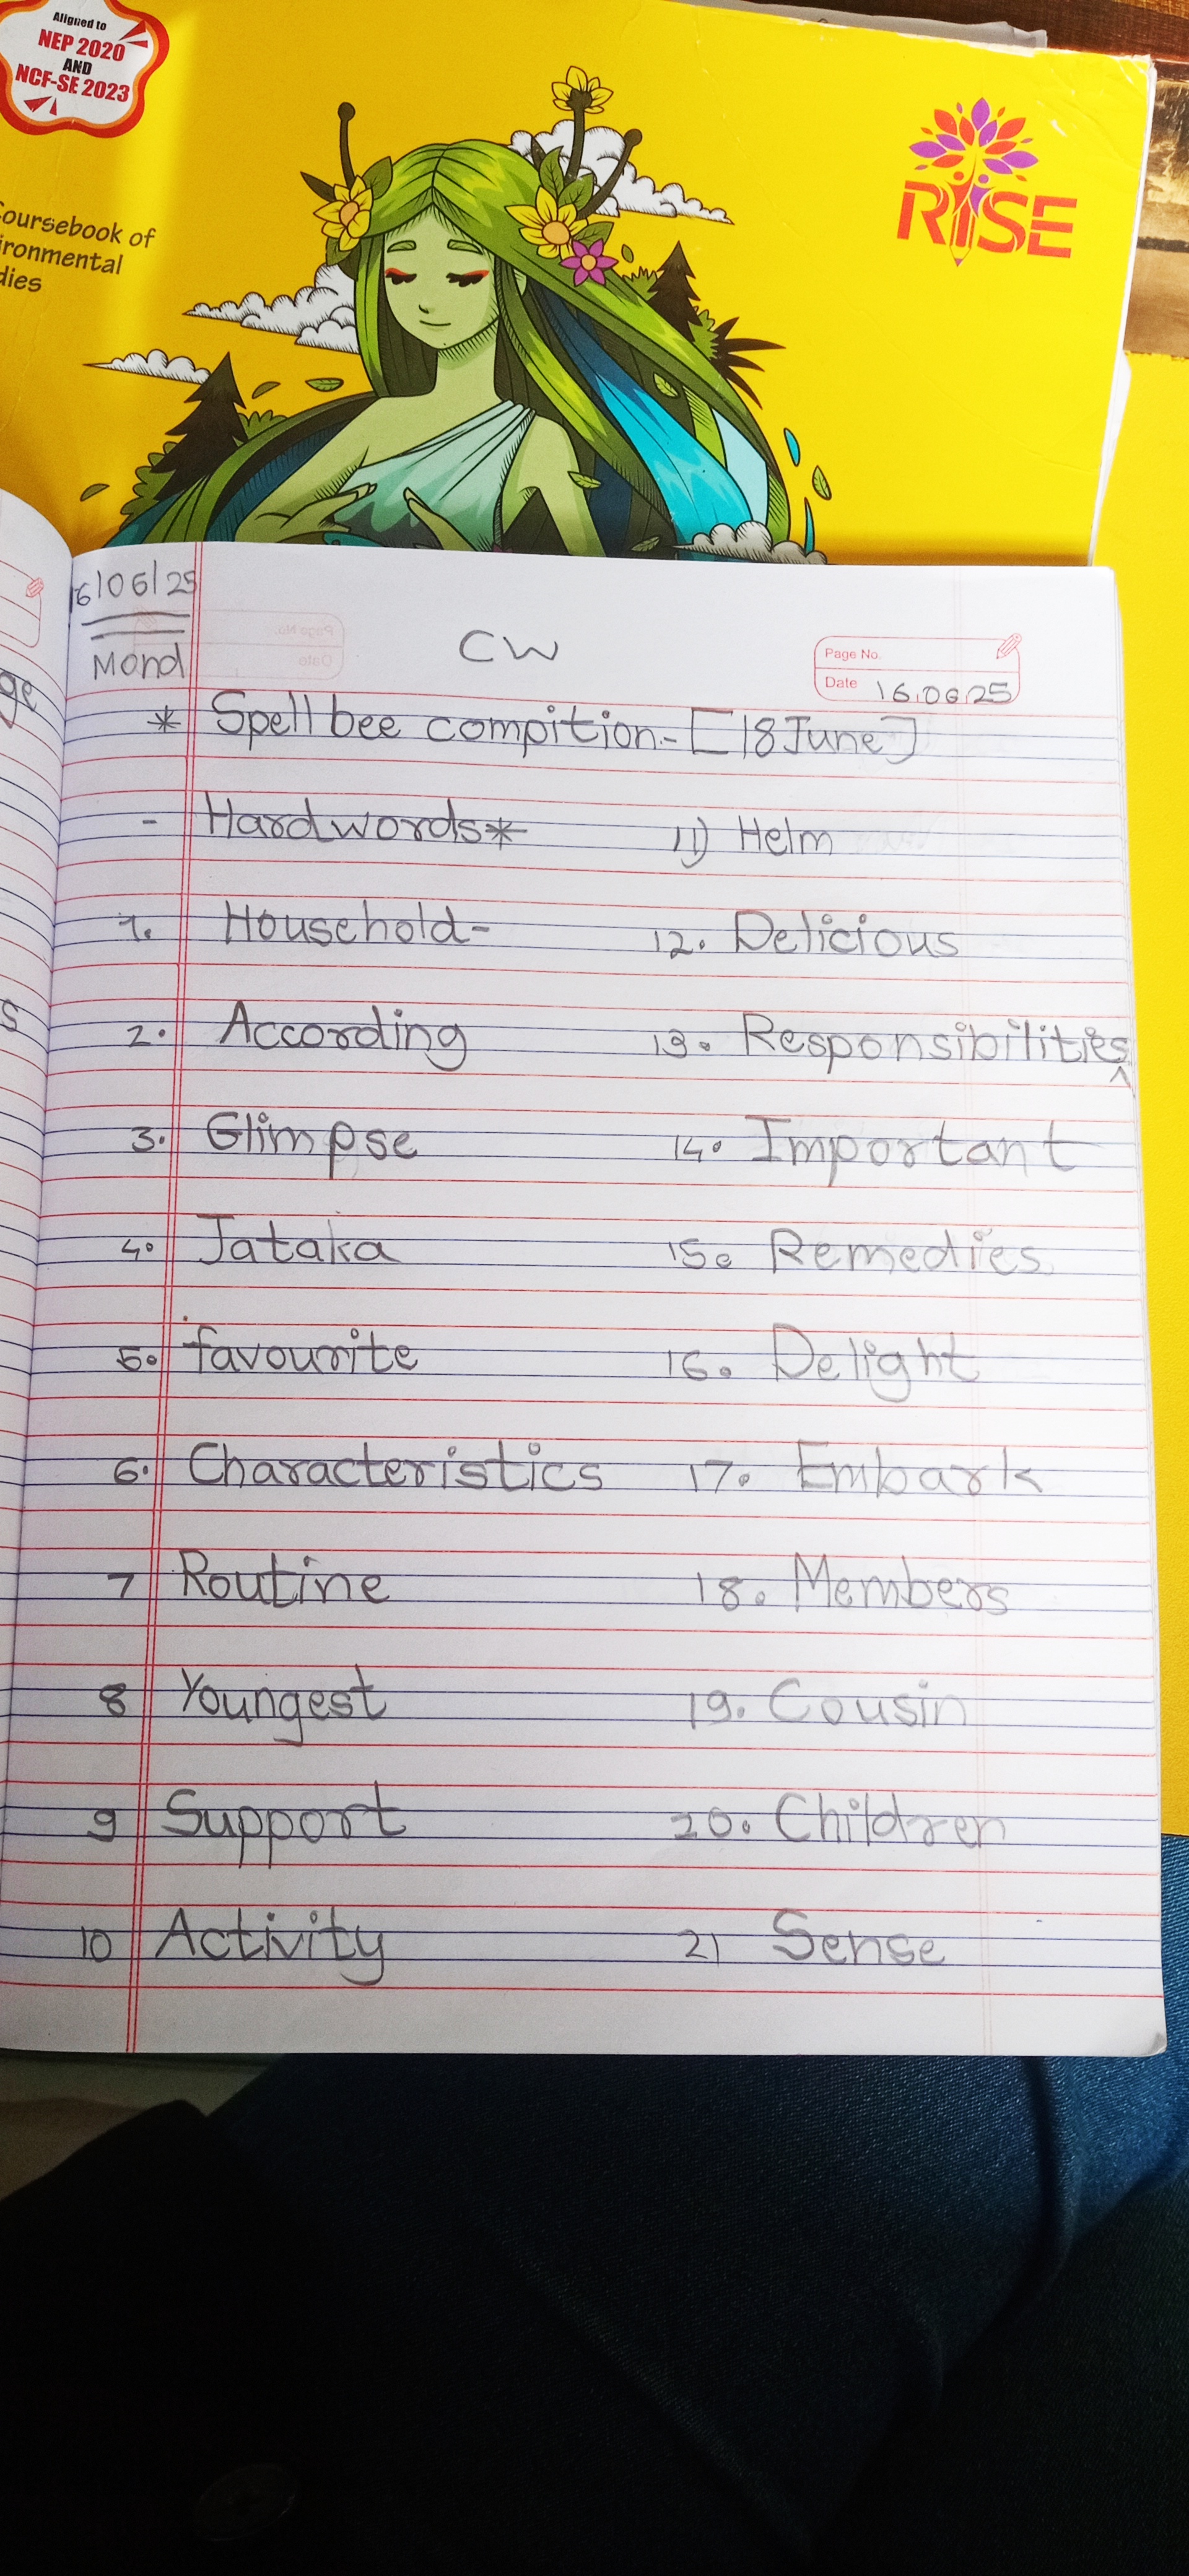 Aligned to
NEP 2020
AND
NCF-SE 2023
RISE
Coursebook of
ironmental
dies
16/06/25
Mond
CW
Page No.
Date 16.06.25
* Spell bee compition.- [18 June]
- Hard words*
1. Household-
2. According
3. Glimpse
4. Jataka
5. favourite
6. Characteristics
7 Routine
8 Youngest
9 Support
10 Activity
11) Helm
12. Delicious
13. Responsibilities
14. Important
15. Remedies
16. Delight
17. Embark
18. Members
19. Cousin
20. Children
21 Sense
ge
s